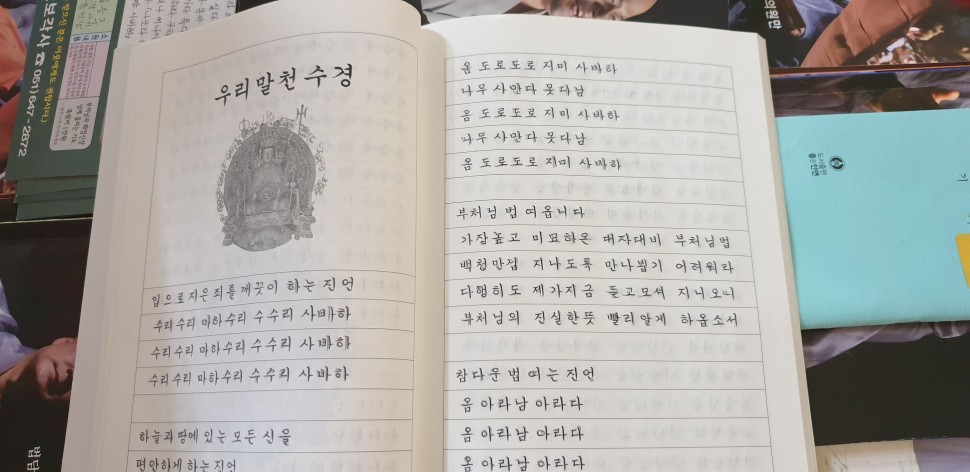 우리말 천수경
입으로 지은 죄를 깨끗이 하는 진언
수리수리 마하수리 수수리 사바하
수리수리 마하수리 수수리 사바하
수리수리 마하수리 수수리 사바하
하늘과 땅에 있는 모든 신을
편안하게 하는 진언
옴 도로도로 지미 사바하
나무 사만다 못다남
옴 도로도로 지미 사바하
나무 사만다 못다남
옴 도로도로 지미 사바하
부처님 법 여옵니다
가장높고 미묘하온 대자대비 부처님법
백천만겁 지나도록 만나뵙기 어려워라
다행히도 제가지금 듣고모셔 지니오니
부처님의 진실한뜻 빨리알게 하옵소서
참다운 법 여는 진언
옴 아라남 아라다
옴 아라남 아라다
옴 아라남 아라다
보각사 ☎ 051) 647-2872
의원만
도서출판
좋은인연
기
법단